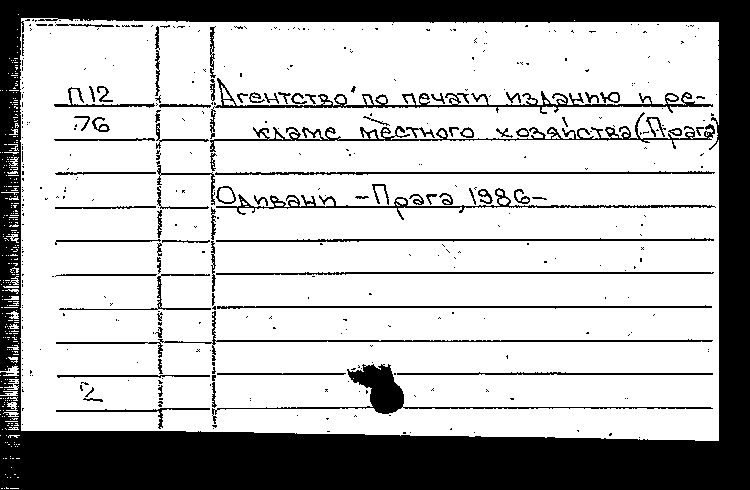 П12 Агентство по печати, изданию и ре-
76 кламе местного хозяйства (Прага)
Одивани - Прага, 1986-
2